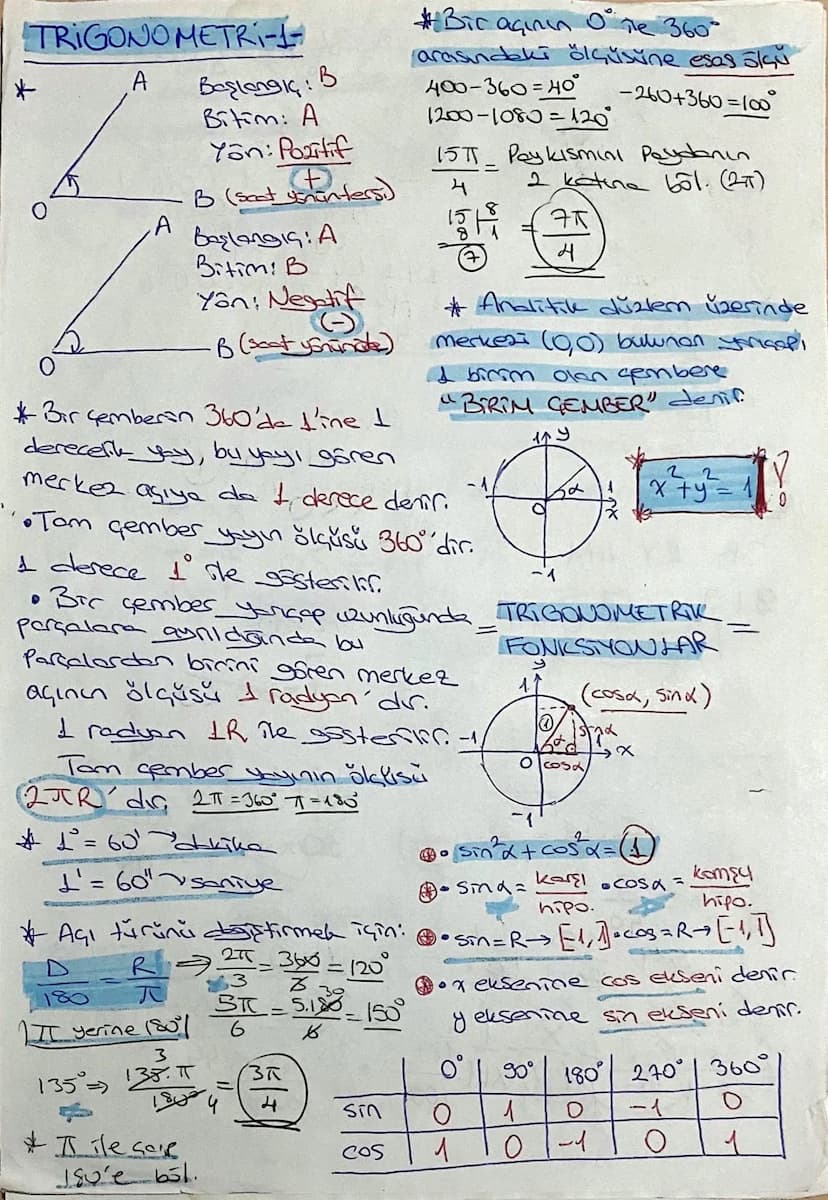 TRİGONOMETRİ-1-
*
A
O
B
Başlangıç: B
Bitim: A
Yön: Pozitif
(+)
(saat yönünün tersi)
A
O
B
Başlangıç: A
Bitim: B
Yön: Negatif
(-)
(saat yönünde)
* Bir çemberin 360'da 1'ine 1
derecelik yay, bu yayı gören
merkez açıya da 1 derece denir.
• Tam çember yayın ölçüsü 360°'dir.
1 derece 1° ile gösterilir.
• Bir çember yarıçap uzunluğunda
parçalara ayrıldığında bu
Parçalardan birini gören merkez
açının ölçüsü 1 radyan'dır.
1 radyan 1R ile gösterilir.
Tam çember yayının ölçüsü
2πR'dir. 2π=360° π=180°
* 1°=60' → dakika
1'=60" → saniye
* Açı türünü değiştirmek için:
D/180 = R/π ⇒ 2π/3 = 360/3 = 120°
5π/6 = 5.180/6 = 150°
30
π yerine 180!
135° ⇒ 135.π/180 = 3π/4
3
4
* π ile çarp
180'e böl.
* Bir açının 0° ile 360°
arasındaki ölçüsüne esas ölçü
400-360=40° -260+360=100°
1200-1080=120°
15π/4 = Pay kısmını Paydanın
2 katına böl. (2π)
15 | 8
8 | 1
7
= 7π/4
* Analitik düzlem üzerinde
merkezi (0,0) bulunan yarıçapı
1 birim olan çembere
"BİRİM ÇEMBER" denir.
1 y
-1 O α 1 x
-1
x²+y²=1 !
= TRİGONOMETRİK =
FONKSİYONLAR
y
1
(cosα, sinα)
1 sinα
-1 O α cosα 1 x
-1
• sin²α+cos²α=1
• sinα = karşı/hipo. • cosα = komşu/hipo.
• sin=R→[-1,1] • cos=R→[-1,1]
• x eksenine cos ekseni denir.
y eksenine sin ekseni denir.
0° 90° 180° 270° 360°
sin 0 1 0 -1 0
cos 1 0 -1 0 1